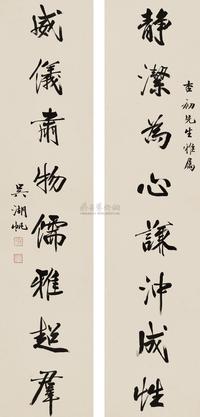 静潔為心謙沖成性
初先生雅屬
威儀肅物儒雅超羣
吳湖帆